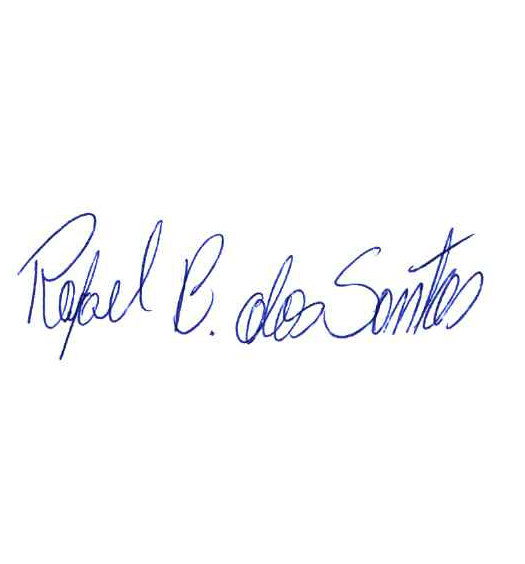 Rafael B. dos Santos